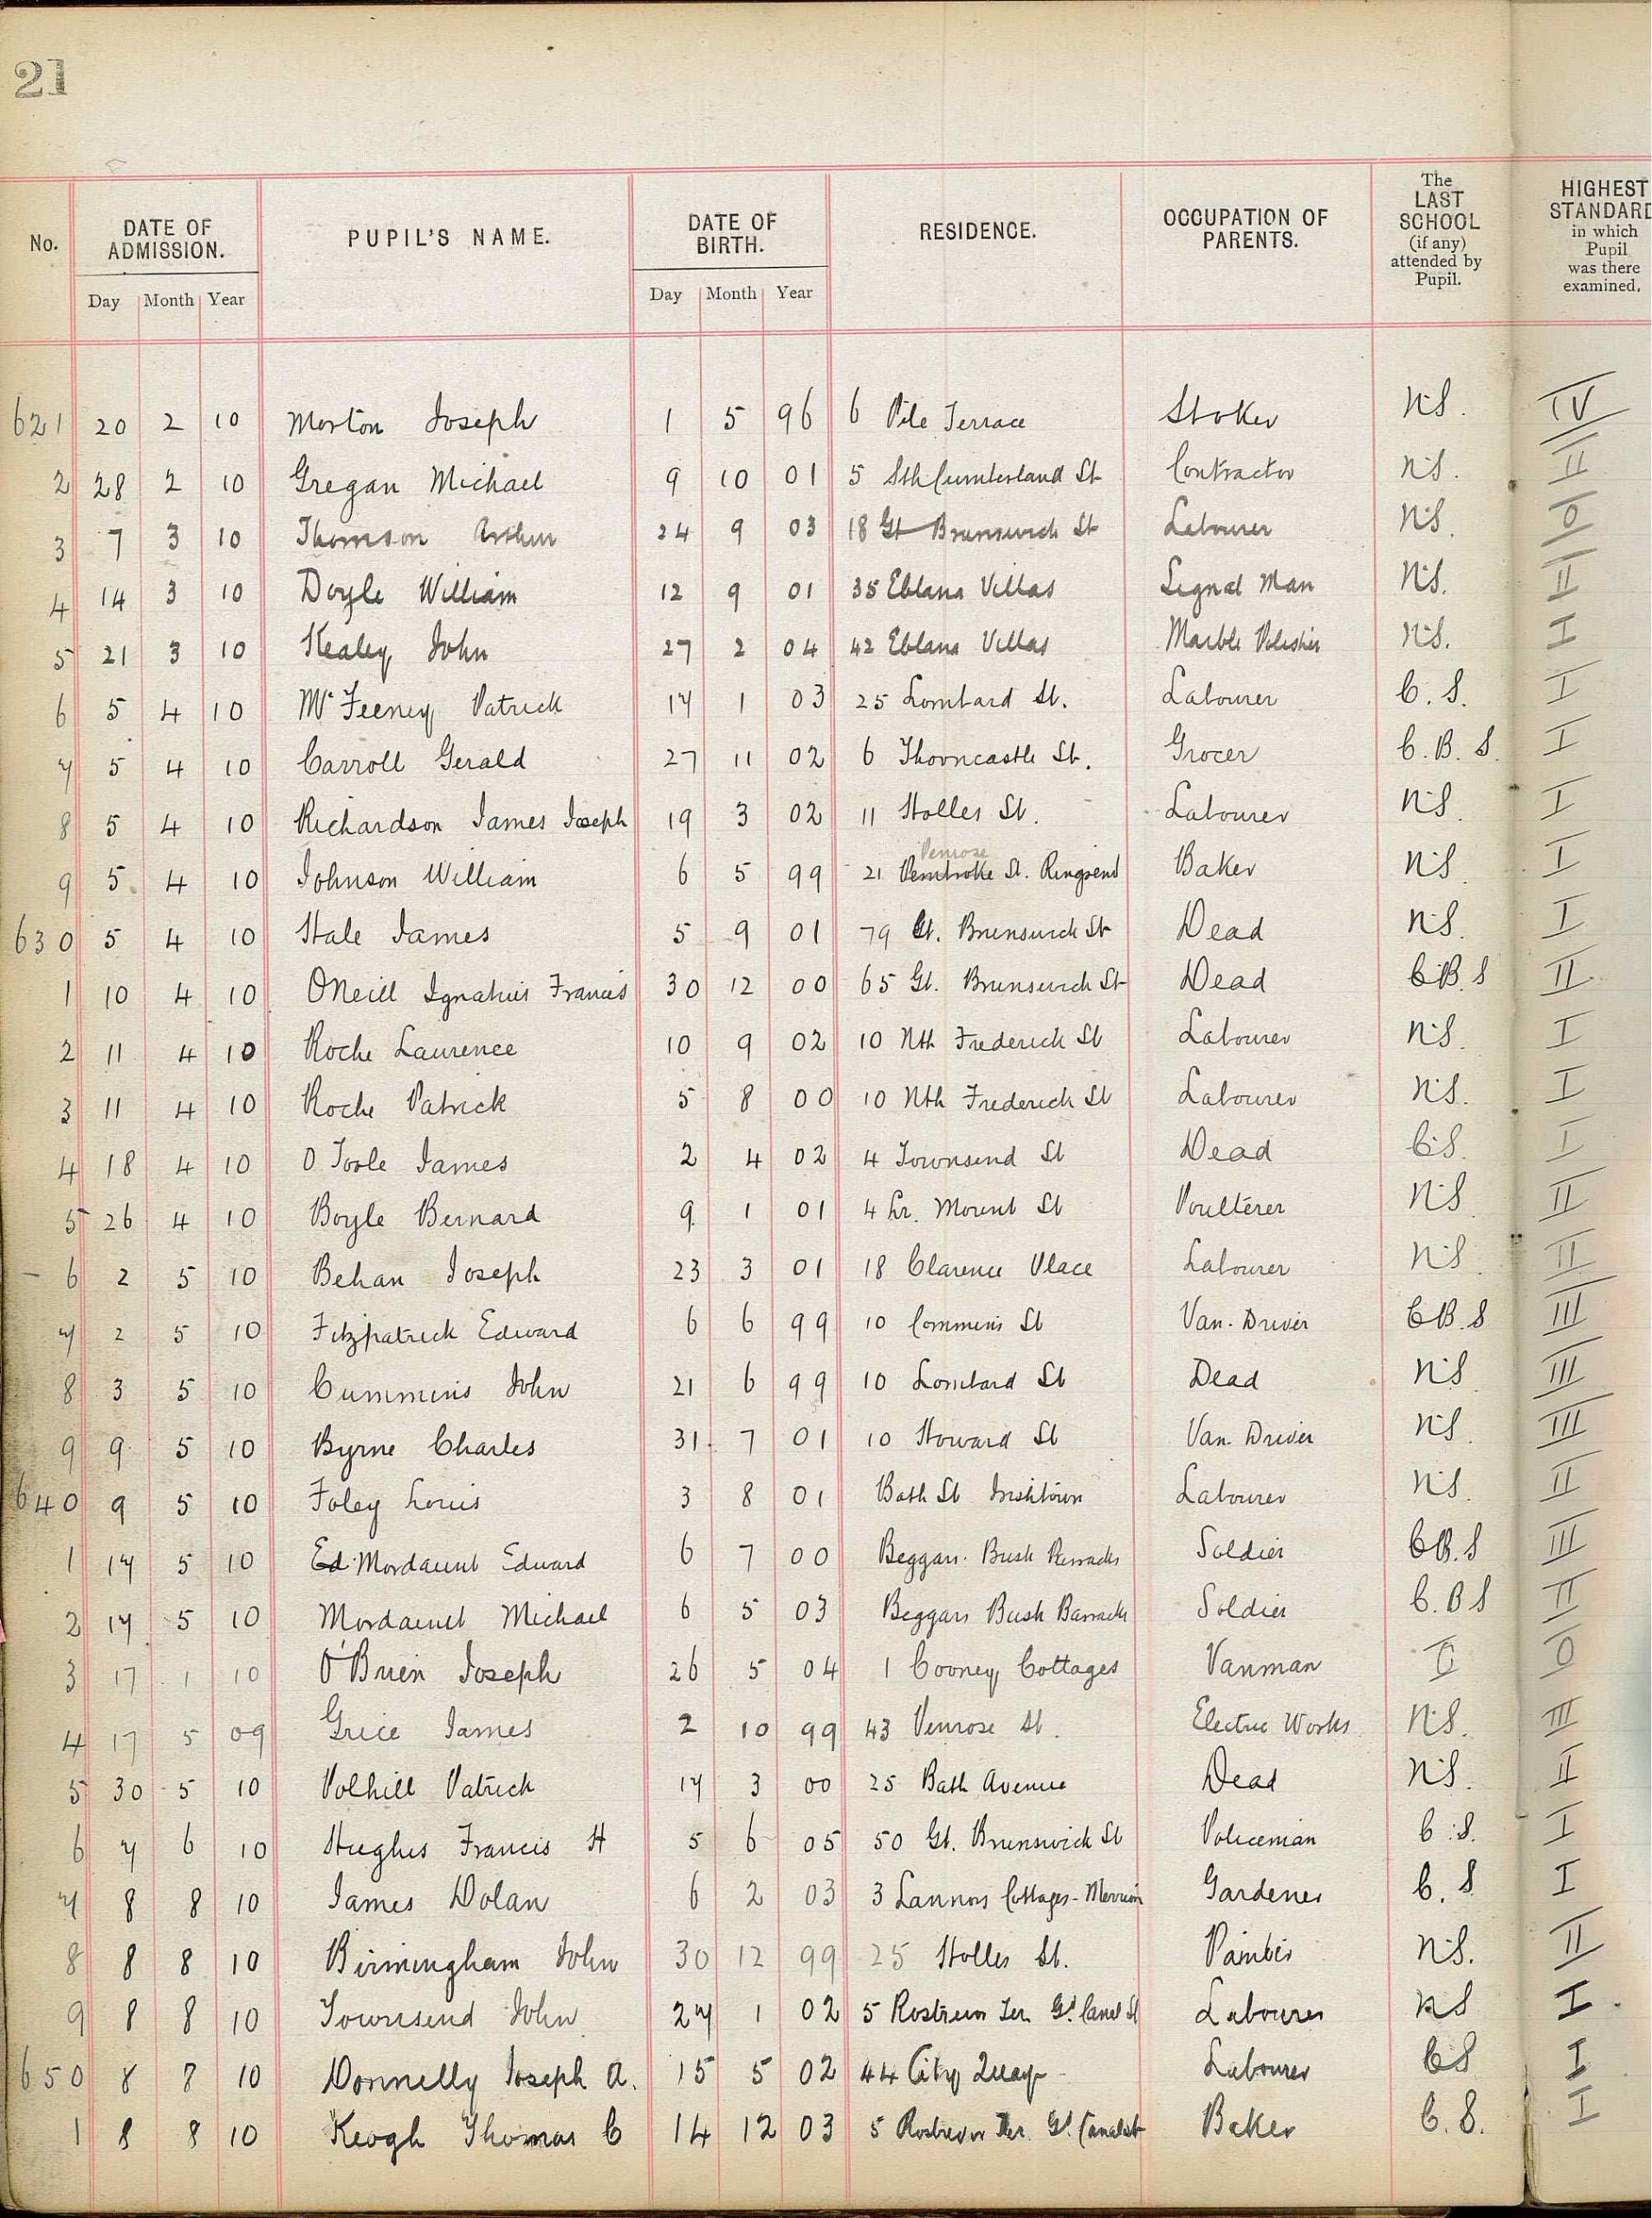 21
No. DATE OF ADMISSION. PUPIL'S NAME. DATE OF BIRTH. RESIDENCE. OCCUPATION OF PARENTS. The LAST SCHOOL (if any) attended by Pupil. HIGHEST STANDARD in which Pupil was there examined.
Day Month Year Day Month Year
621 20 2 10 Morton Joseph 1 5 96 6 Pile Terrace Stoker N.S. IV
2 28 2 10 Gregan Michael 9 10 01 5 Sth Cumberland St Contractor N.S. II
3 7 3 10 Thomson Arthur 24 9 03 18 Gt Brunswick St Labourer N.S. 0
4 14 3 10 Doyle William 12 9 01 35 Eblana Villas Signal Man N.S. II
5 21 3 10 Kealey John 27 2 04 42 Eblana Villas Marble Polisher N.S. I
6 5 4 10 McFeeney Patrick 17 1 03 25 Lombard St. Labourer C.S. I
7 5 4 10 Carroll Gerald 27 11 02 6 Thorncastle St. Grocer C.B.S. I
8 5 4 10 Richardson James Joseph 19 3 02 11 Holles St. Labourer N.S. I
Penrose
9 5 4 10 Johnson William 6 5 99 21 Pembroke St. Ringsend Baker N.S. I
630 5 4 10 Hale James 5 9 01 79 Gt. Brunswick St Dead N.S. I
1 10 4 10 O'Neill Ignatius Francis 30 12 00 65 Gt. Brunswick St Dead C.B.S II
2 11 4 10 Roche Laurence 10 9 02 10 Nth Frederick St Labourer N.S. I
3 11 4 10 Roche Patrick 5 8 00 10 Nth Frederick St Labourer N.S. I
4 18 4 10 O Toole James 2 4 02 4 Townsend St Dead C.S. I
5 26 4 10 Boyle Bernard 9 1 01 4 Lr. Mount St Poulterer N.S. II
6 2 5 10 Behan Joseph 23 3 01 18 Clarence Place Labourer N.S. II
7 2 5 10 Fitzpatrick Edward 6 6 99 10 Commins St Van-Driver C.B.S III
8 3 5 10 Cummins John 21 6 99 10 Lombard St Dead N.S. III
9 9 5 10 Byrne Charles 31 7 01 10 Howard St Van-Driver N.S. III
640 9 5 10 Foley Louis 3 8 01 Bath St Irishtown Labourer N.S. II
1 17 5 10 Ed. Mordaunt Edward 6 7 00 Beggars Bush Barracks Soldier C.B.S III
2 17 5 10 Mordaunt Michael 6 5 03 Beggars Bush Barracks Soldier C.B.S II
3 17 1 10 O'Brien Joseph 26 5 04 1 Cooney Cottages Vanman 0
4 17 5 09 Grice James 2 10 99 43 Penrose St. Electric Works N.S. III
5 30 5 10 Polhill Patrick 17 3 00 25 Bath Avenue Dead N.S. II
6 7 6 10 Hughes Francis H 5 6 05 50 Gt. Brunswick St Policeman C.S. I
7 8 8 10 James Dolan 6 2 03 3 Lannons Cottages-Merrion Gardener C.S I
8 8 8 10 Birmingham John 30 12 99 25 Holles St. Painter N.S. II
9 8 8 10 Townsend John 27 1 02 5 Ter. Gd. Canal St Labourer NS I
650 8 8 10 Donnelly Joseph A. 15 5 02 44 City Quay Labourer CS I
1 8 8 10 Keogh Thomas C 14 12 03 5 Rostrevor Ter. Gd. Canal St Baker C.S. I